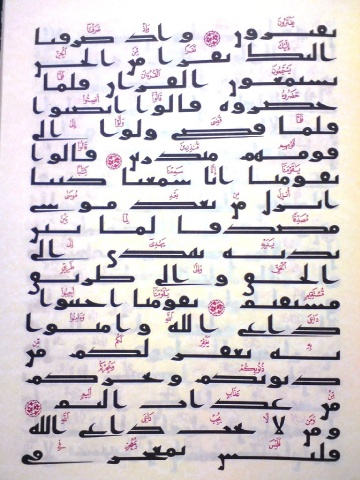 يفترون واذ صرفنا
اليك نفرا من الجن
يستمعون القران فلما
حضروه قالوا انصتوا
فلما قضى ولوا الى
قومهم منذرين قالوا
يقومنا انا سمعنا كتبا
انزل من بعد موسى
مصدقا لما بين
يديه يهدى الى
الحق والى طريق
مستقيم يقومنا اجيبوا
داعى الله وامنوا
به يغفر لكم من
ذنوبكم ويجركم
من عذاب اليم
ومن لا يجب داعى الله
فليس بمعجز فى